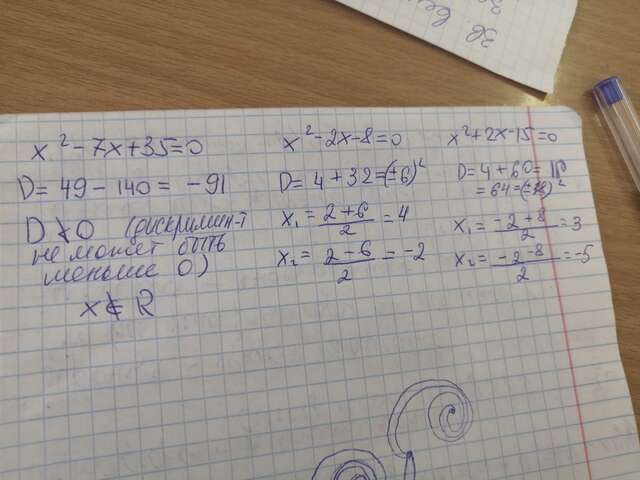 Зв.
x² - 7x + 35 = 0
D = 49 - 140 = -91
D ≮ 0 (дискримин-т
не может быть
меньше 0)
x ∉ R
x² - 2x - 8 = 0
D = 4 + 32 = (±6)²
x₁ = (2 + 6)/2 = 4
x₂ = (2 - 6)/2 = -2
x² + 2x - 15 = 0
D = 4 + 60 =
= 64 = (±8)²
x₁ = (-2 + 8)/2 = 3
x₂ = (-2 - 8)/2 = -5